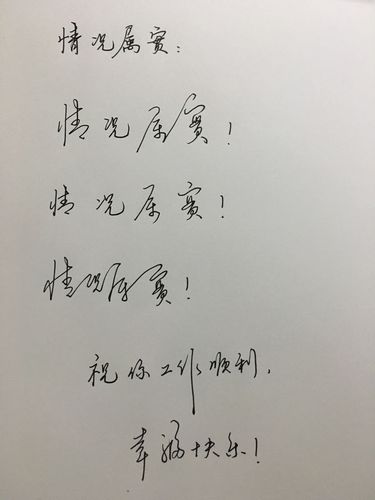 情况属实：
情况属实！
情况属实！
情况属实！
祝你工作顺利，
幸福快乐！